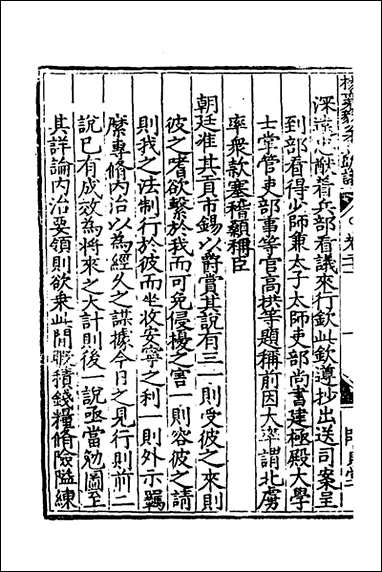 深遠忠猷着兵部看議來行欽此欽遵抄出送司案呈
到部看得少師兼太子太師吏部尚書建極殿大學
士掌管吏部事等官高拱等題稱前因大率謂北虜
率眾款塞稽顙稱臣
朝廷准其貢市錫以爵賞其說有三一則受彼之來則
彼之嗜欲繫於我而可免侵擾之害一則容彼之請
則我之法制行於彼而坐收安寧之利一則外示羈
縻專脩內治以為經久之謀據今日之見行則前二
說已有成效為將來之大計則後一說亟當勉圖至
其詳論內治要領則欲乘此閒暇積錢糧脩險隘練